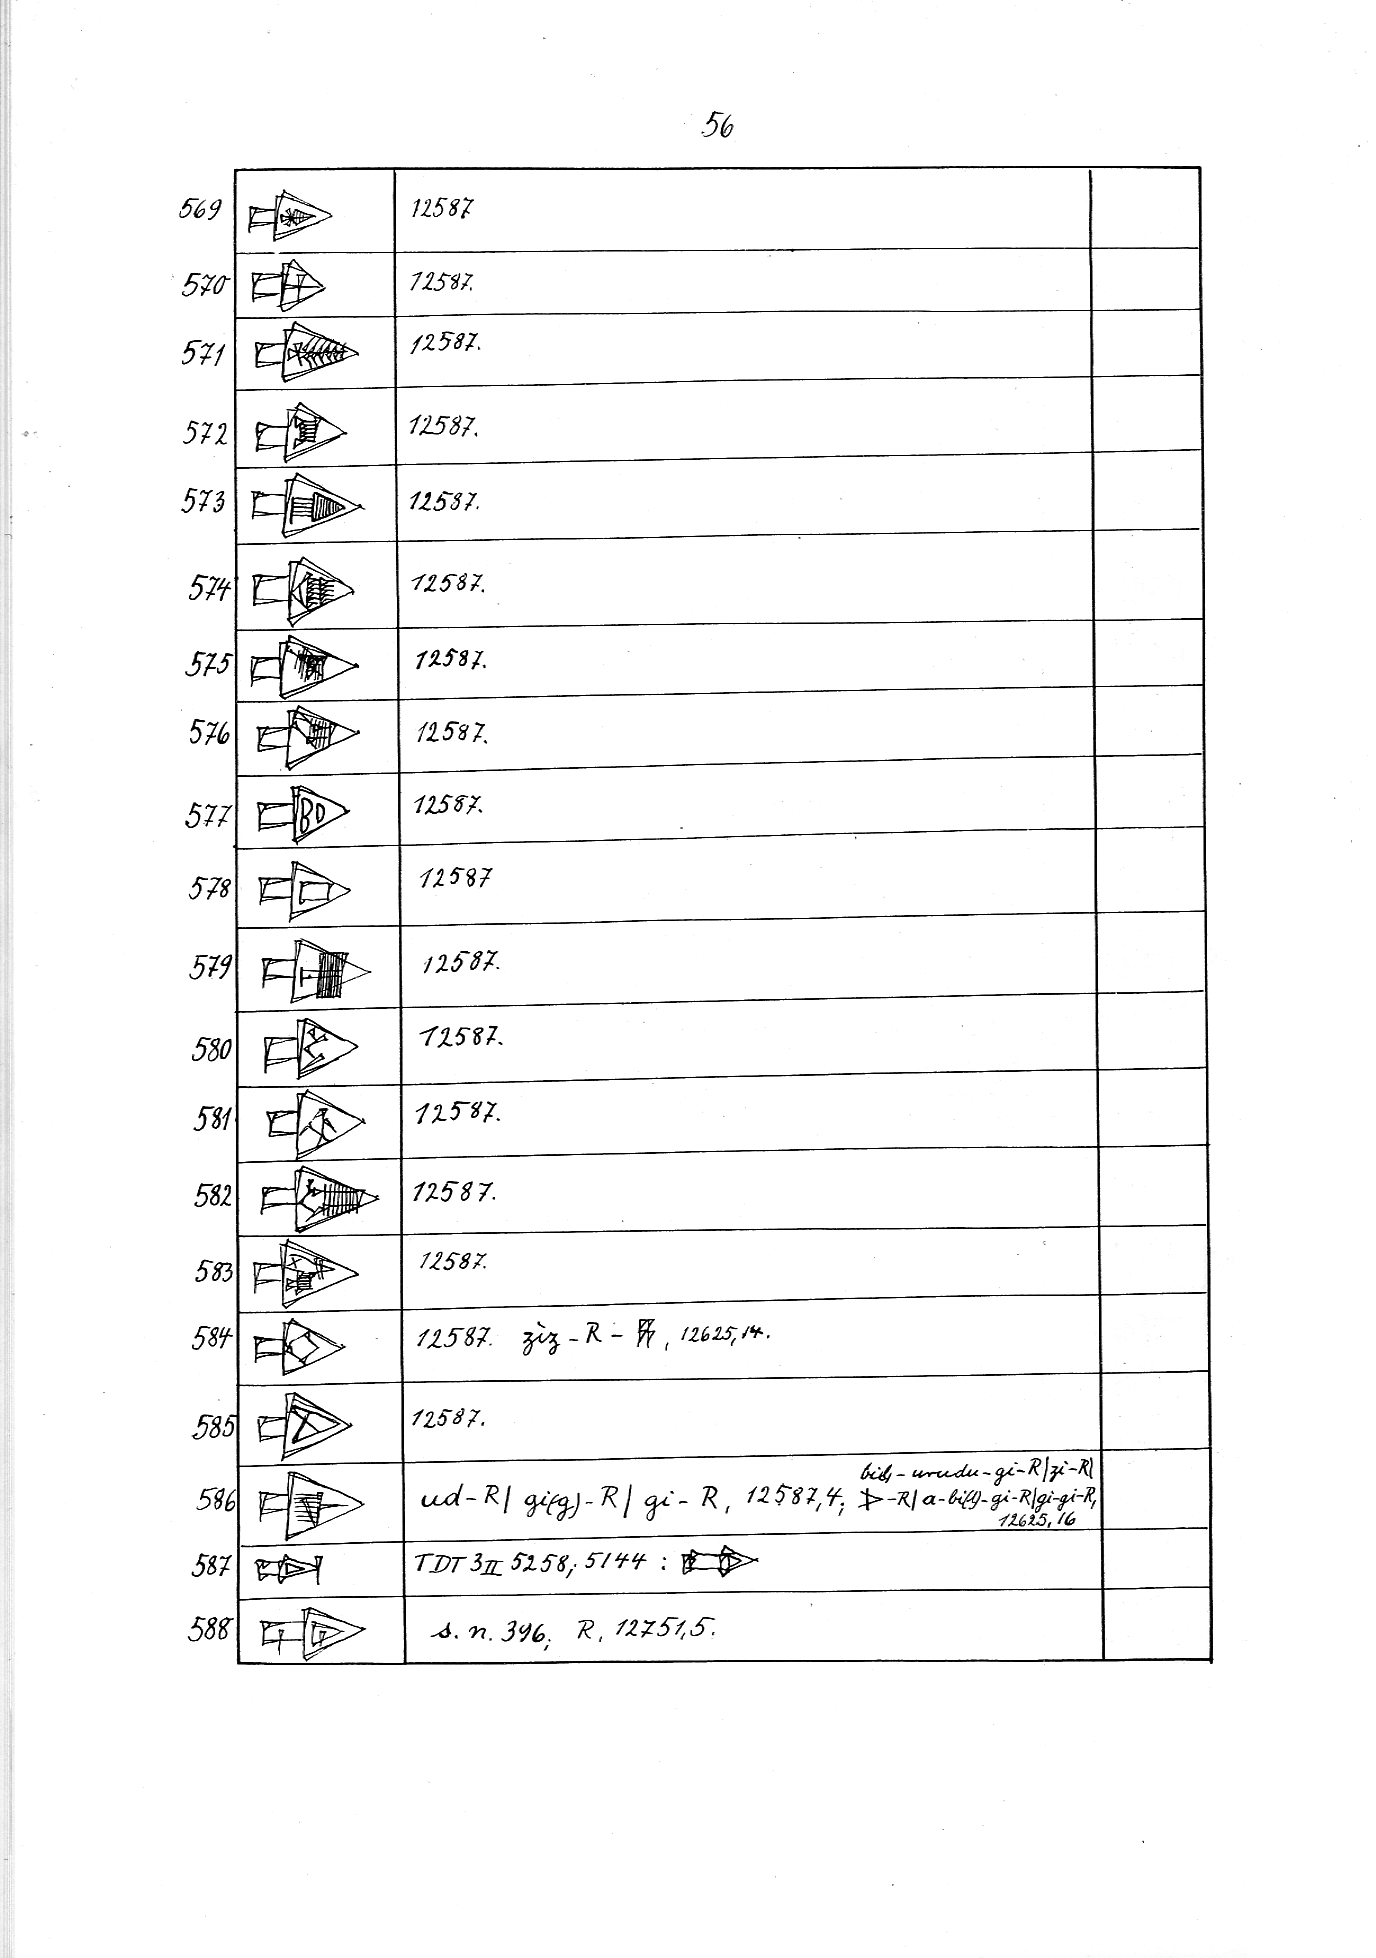 56
569 12587
570 12587.
571 12587.
572 12587.
573 12587.
574 12587.
575 12587.
576 12587.
577 12587.
578 12587
579 12587.
580 12587.
581 12587.
582 12587.
583 12587.
584 12587. zìz-R- , 12625,14.
585 12587.
-urudu-gi-R|zi-R|
586 ud-R| gi(g)-R| gi-R, 12587,4; -R| a- -gi-R|gi-gi-R,
12625,16
587 TDT 3II 5258; 5144 :
588 s. n. 396; R, 12751,5.